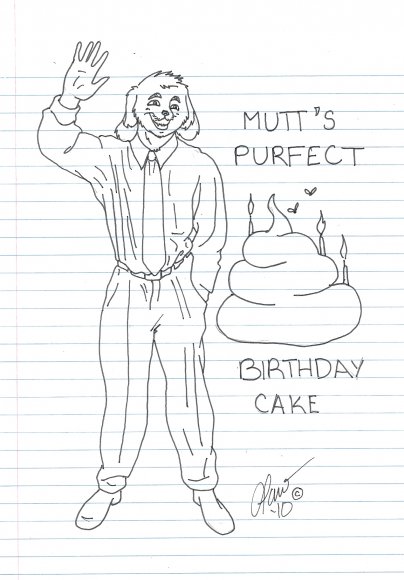 MUTT'S
PURFECT
BIRTHDAY
CAKE
©
-10